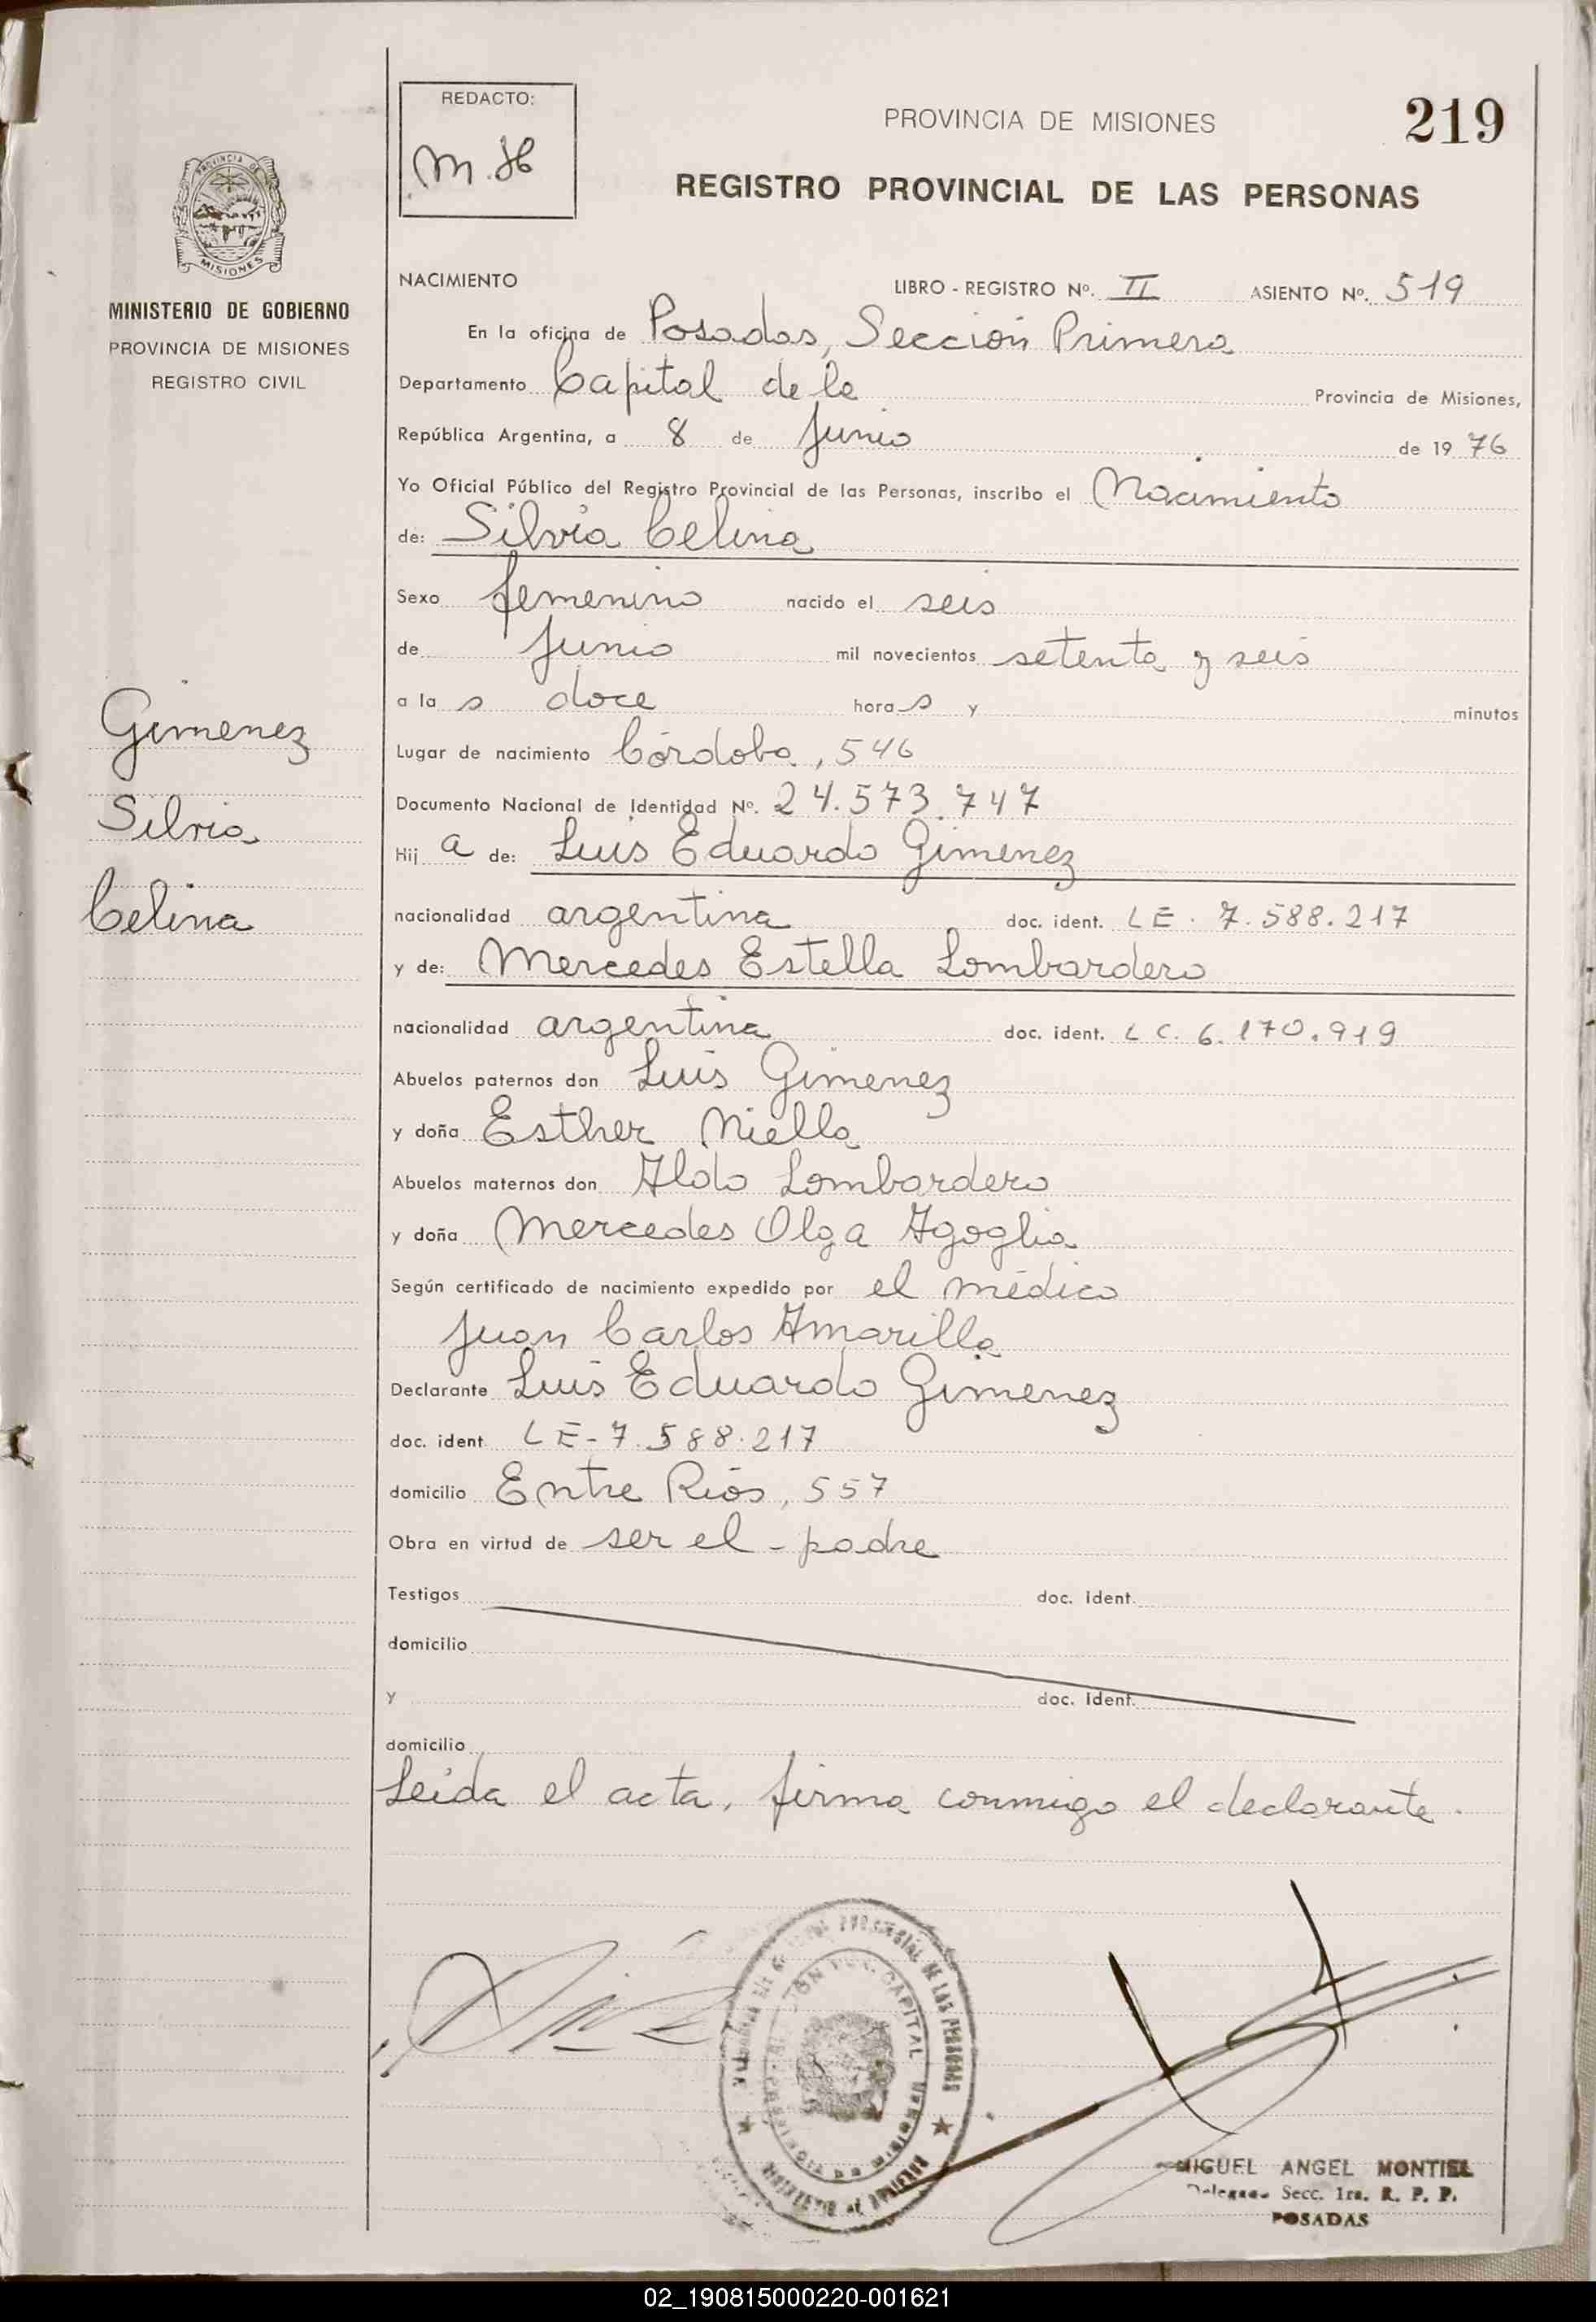 REDACTO:
M.H
PROVINCIA DE MISIONES
219
REGISTRO PROVINCIAL DE LAS PERSONAS
MISIONES
MINISTERIO DE GOBIERNO
PROVINCIA DE MISIONES
REGISTRO CIVIL
NACIMIENTO LIBRO - REGISTRO Nº. II ASIENTO Nº. 519
En la oficina de Posadas, Sección Primera
Departamento Capital de la Provincia de Misiones,
República Argentina, a 8 de Junio de 19 76
Yo Oficial Público del Registro Provincial de las Personas, inscribo el Nacimiento
de: Silvia Celina
Sexo femenino nacido el seis
de Junio mil novecientos setenta y seis
a la s doce hora s y minutos
Lugar de nacimiento Córdoba, 546
Documento Nacional de Identidad Nº. 24.573.747
Hij a de: Luis Eduardo Gimenez
nacionalidad argentina doc. ident. LE. 7.588.217
y de: Mercedes Estella Lombardero
nacionalidad argentina doc. ident. LC. 6.170.919
Abuelos paternos don Luis Gimenez
y doña Esther Niella
Abuelos maternos don Aldo Lombardero
y doña Mercedes Olga Agoglia
Según certificado de nacimiento expedido por el médico
Juan Carlos Amarilla
Declarante Luis Eduardo Gimenez
doc. ident LE-7.588.217
domicilio Entre Ríos, 557
Obra en virtud de ser el - padre
Testigos doc. ident.
domicilio
y doc. ident.
domicilio
Leida el acta, firma conmigo el declarante.
Gimenez
Silvia
Celina
MIGUEL ANGEL MONTIEL
Delegado Secc. 1ra. R. P. P.
POSADAS
02_190815000220-001621